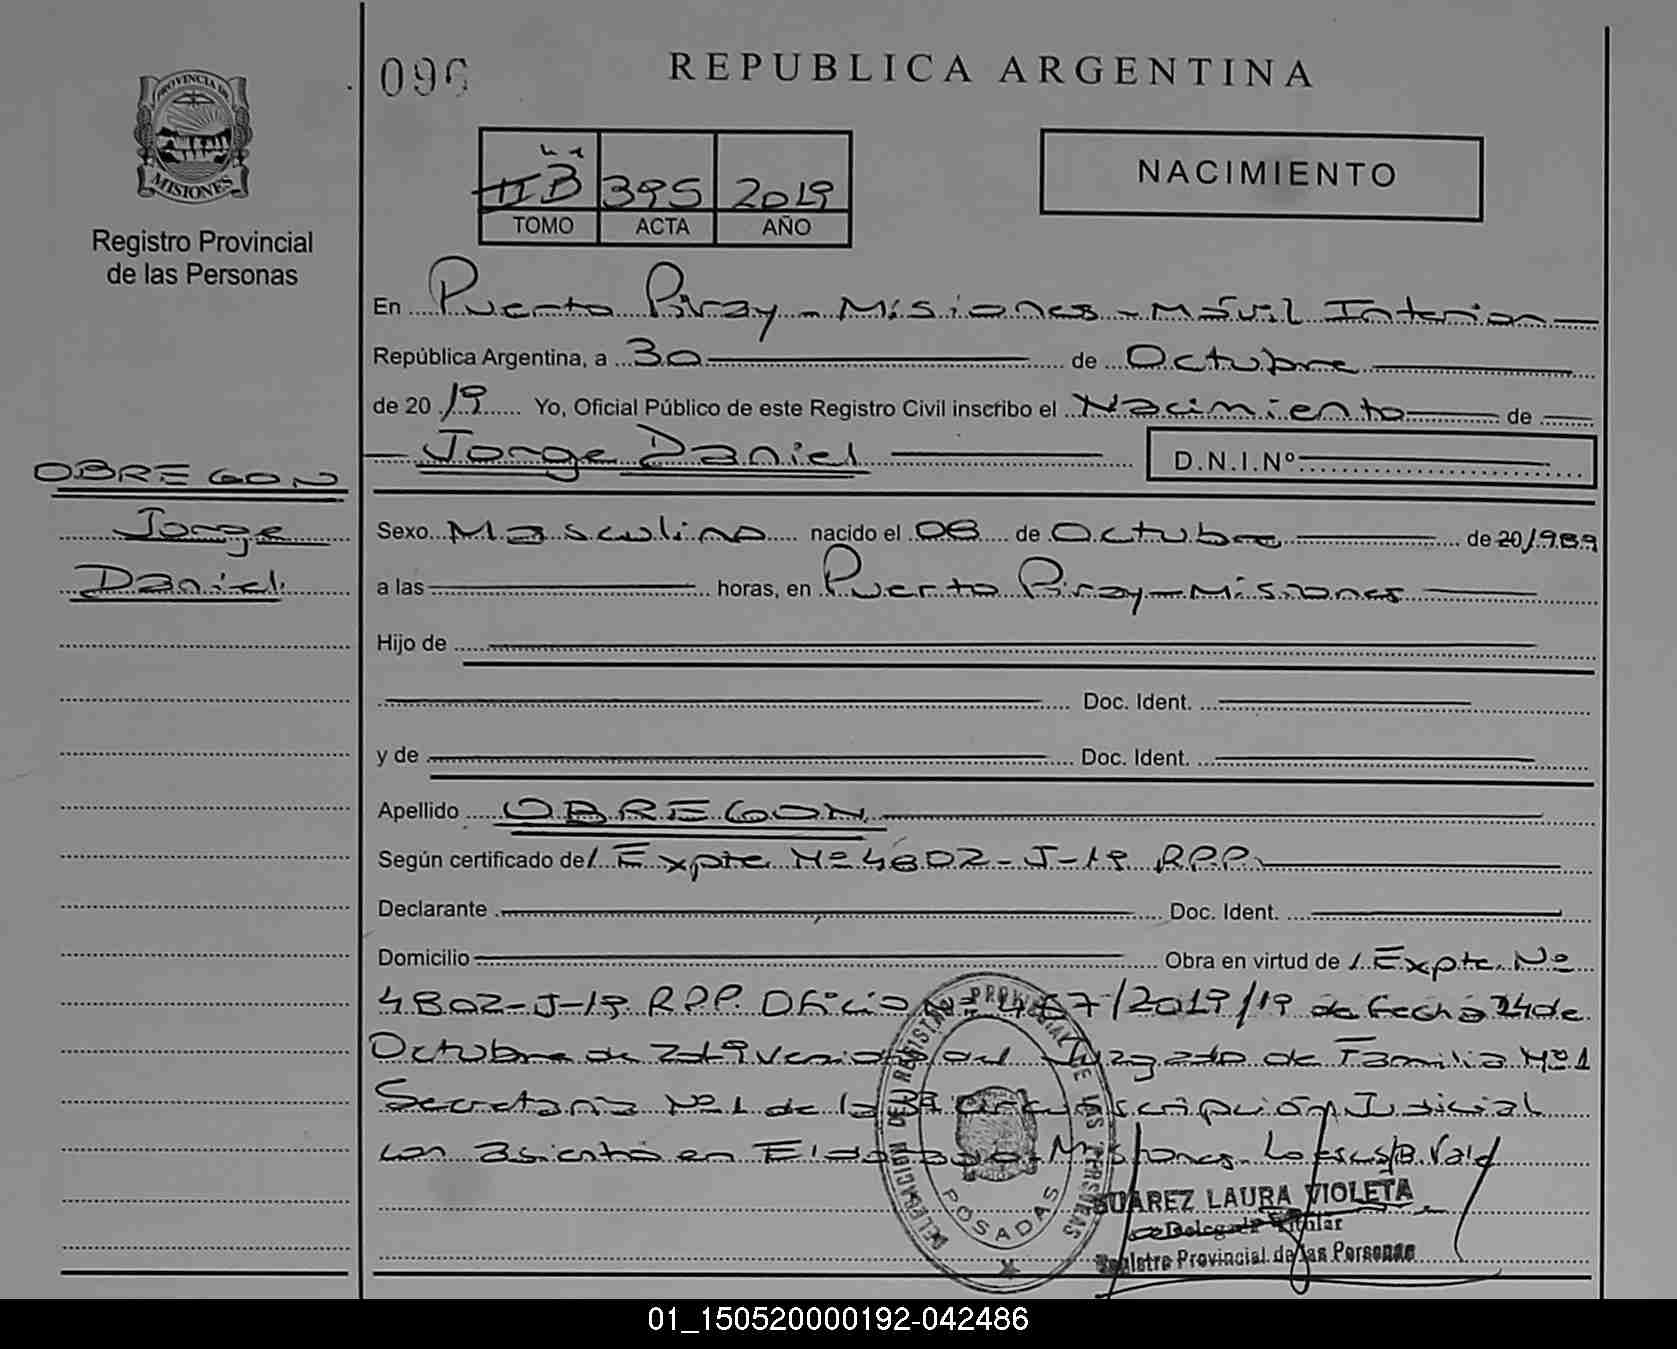 PROVINCIA DE
MISIONES
Registro Provincial
de las Personas
OBREGON
Jorge
Daniel
096
REPUBLICA ARGENTINA
B 395 2019
TOMO ACTA AÑO
NACIMIENTO
En Puerto Piray - Misiones - Móvil Interior
República Argentina, a 30 de Octubre
de 2019 Yo, Oficial Público de este Registro Civil inscribo el Nacimiento de
Jorge Daniel D.N.I.Nº
Sexo Masculino nacido el 08 de Octubre de 20/1989
a las horas, en Puerto Piray - Misiones
Hijo de
Doc. Ident.
y de Doc. Ident.
Apellido OBREGON
Según certificado de/ Expte Nº 4802-J-19 R.P.P.
Declarante Doc. Ident.
Domicilio Obra en virtud de / Expte. Nº
4802-J-19 R.P.P. Oficio Nº /2019/19 de fecha 24 de
Octubre de 2019 del Juzgado de Familia Nº 1
Secretaria Nº 1 de la Circunscripción Judicial
con asiento en Eldorado - Misiones. Lo es/B. Vale
DELEGACION DEL REGISTRO PROVINCIAL DE LAS PERSONAS
POSADAS
SUAREZ LAURA VIOLETA
Delegada Titular
Registro Provincial de las Personas
01_150520000192-042486